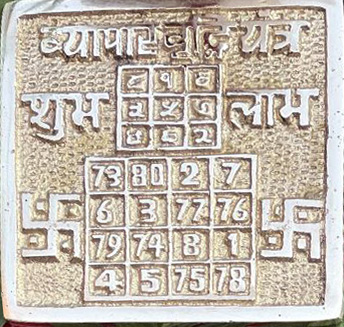 व्यापार वृद्धि यंत्र
शुभ लाभ
73 80 2 7
6 3 77 76
79 74 8 1
4 5 75 78